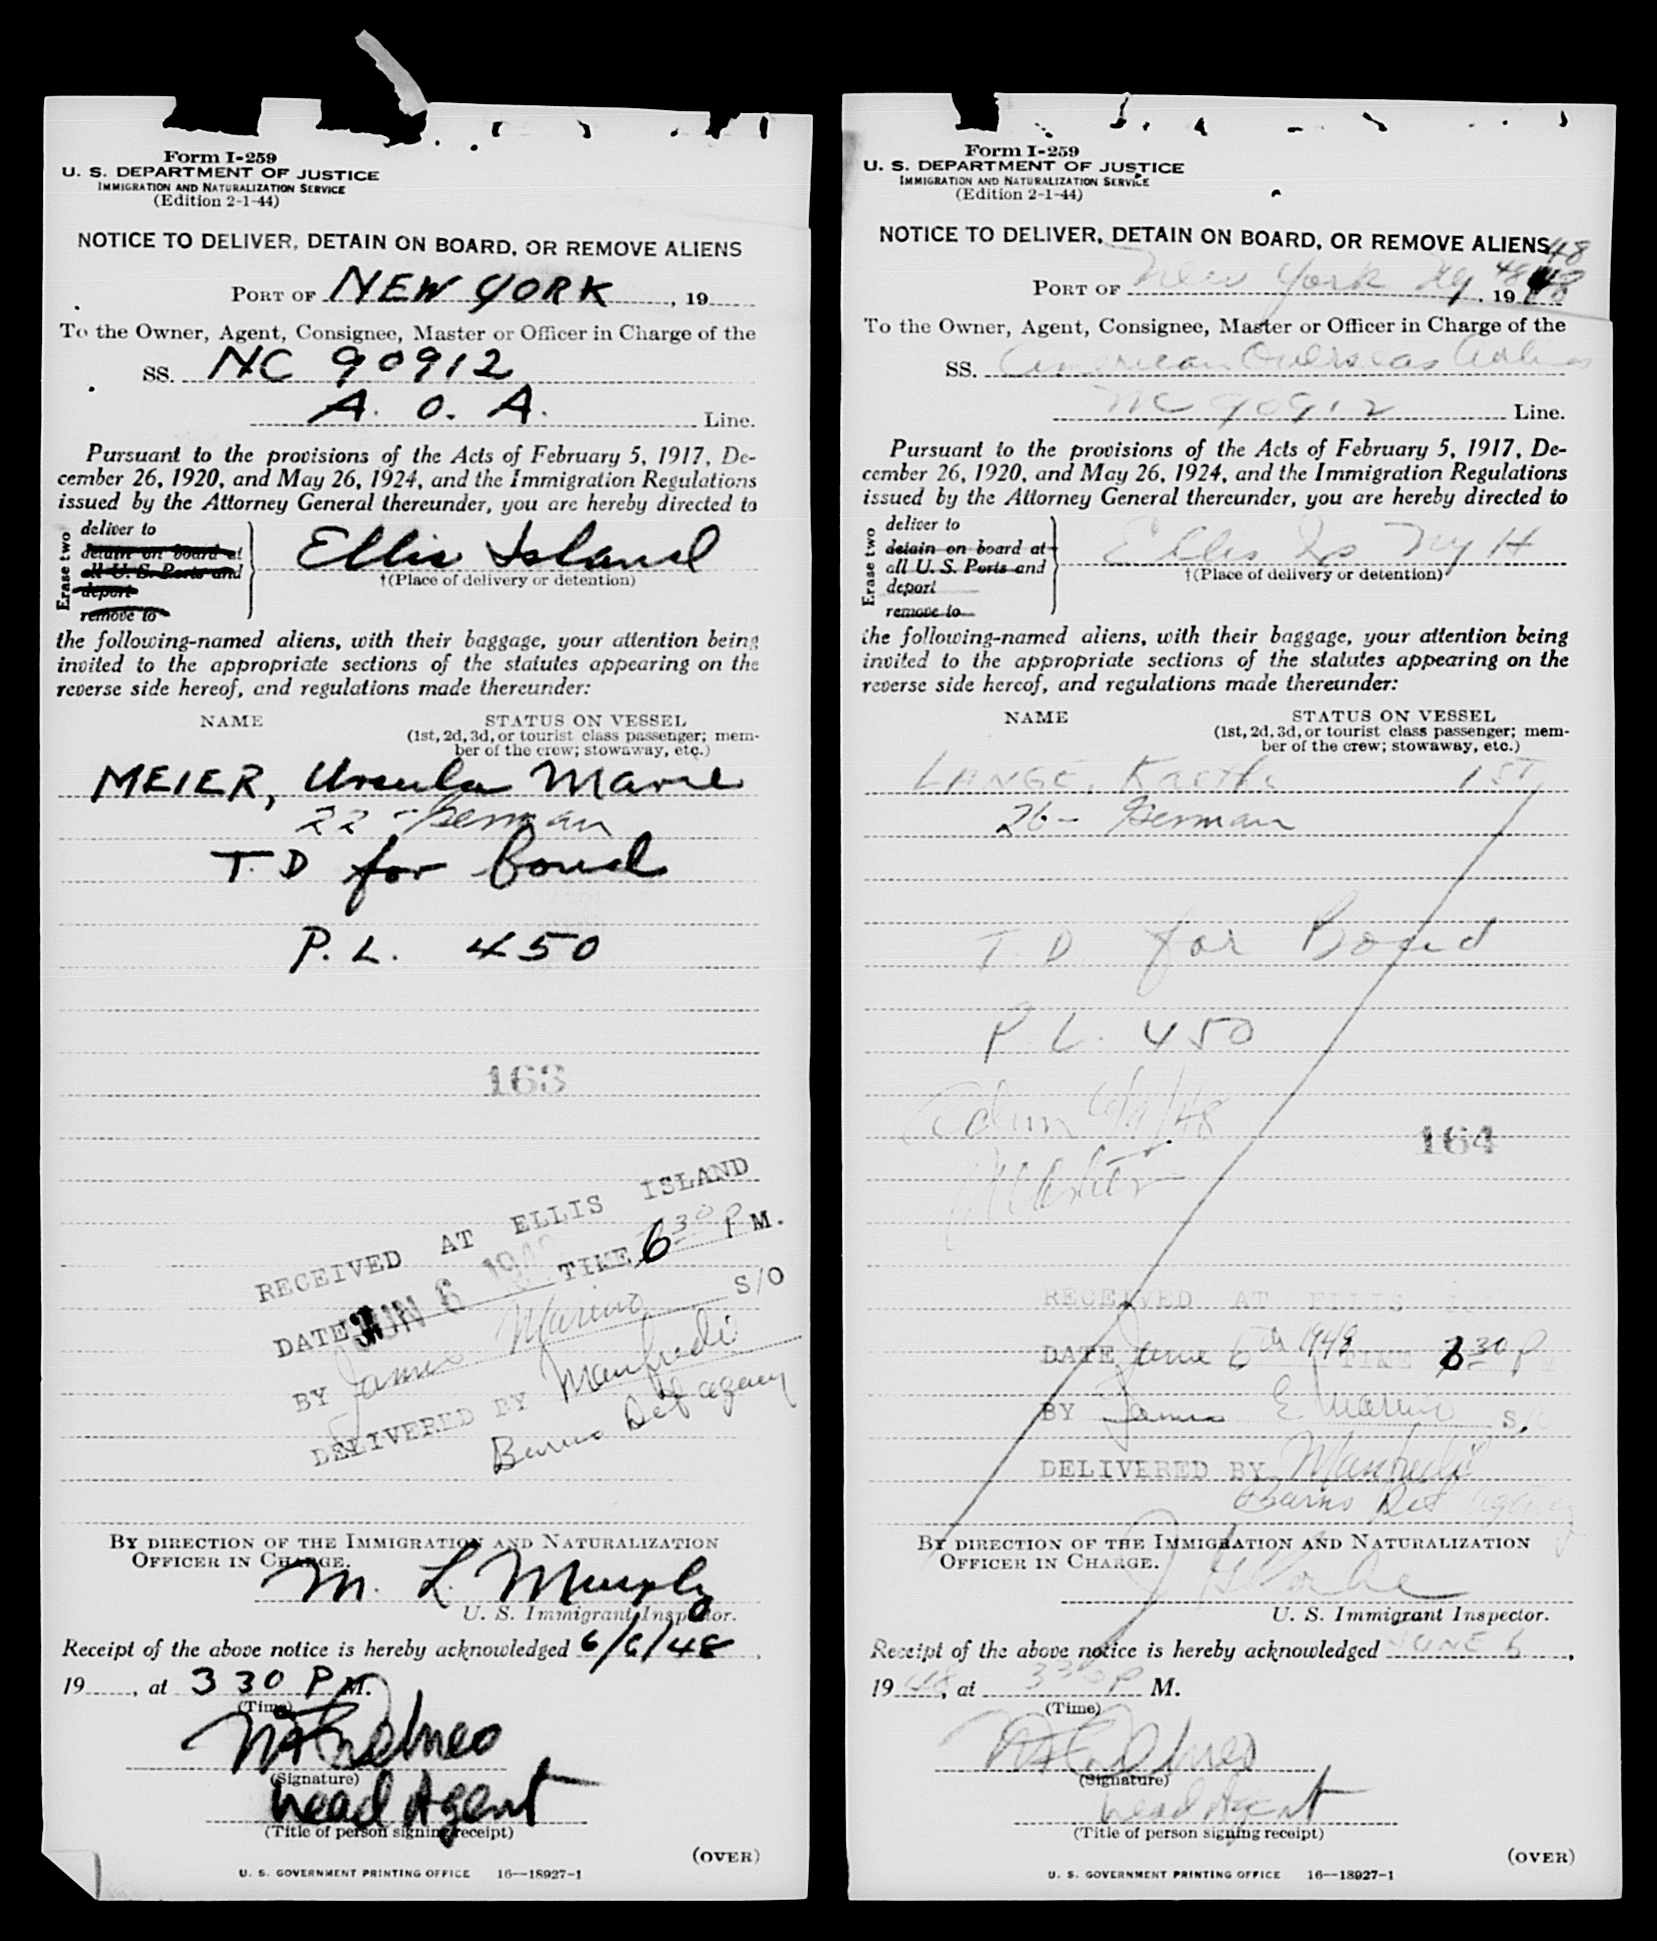 Form I-259
U. S. DEPARTMENT OF JUSTICE
IMMIGRATION AND NATURALIZATION SERVICE
(Edition 2-1-44)
NOTICE TO DELIVER, DETAIN ON BOARD, OR REMOVE ALIENS
PORT OF NEW YORK, 19
To the Owner, Agent, Consignee, Master or Officer in Charge of the
SS. NC 90912
A. O. A. Line.
Pursuant to the provisions of the Acts of February 5, 1917, De-
cember 26, 1920, and May 26, 1924, and the Immigration Regulations
issued by the Attorney General thereunder, you are hereby directed to
Erase two
deliver to
detain on board at
all U. S. Ports and
deport
remove to
Ellis Island
†(Place of delivery or detention)
the following-named aliens, with their baggage, your attention being
invited to the appropriate sections of the statutes appearing on the
reverse side hereof, and regulations made thereunder:
NAME STATUS ON VESSEL
(1st, 2d, 3d, or tourist class passenger; mem-
ber of the crew; stowaway, etc.)
MEIER, Ursula Marie
22 - German
T. D for Bond
P. L. 450
163
RECEIVED AT ELLIS ISLAND
DATE JUN 6 194 TIME 6 30 P M.
BY James Marino S/O
DELIVERED BY Manfredi
Burns Det agency
BY DIRECTION OF THE IMMIGRATION AND NATURALIZATION
OFFICER IN CHARGE.
M. L. Murphy
U. S. Immigrant Inspector.
Receipt of the above notice is hereby acknowledged 6/6/48,
19, at 3 30 P M.
(Time)
(Signature)
head Agent
(Title of person signing receipt)
(OVER)
U. S. GOVERNMENT PRINTING OFFICE 16—18927-1
Form I-259
U. S. DEPARTMENT OF JUSTICE
IMMIGRATION AND NATURALIZATION SERVICE
(Edition 2-1-44)
NOTICE TO DELIVER, DETAIN ON BOARD, OR REMOVE ALIENS
48
PORT OF New York Ny 48, 19 48
To the Owner, Agent, Consignee, Master or Officer in Charge of the
SS. American Overseas Airlines
NC 90912 Line.
Pursuant to the provisions of the Acts of February 5, 1917, De-
cember 26, 1920, and May 26, 1924, and the Immigration Regulations
issued by the Attorney General thereunder, you are hereby directed to
Erase two
deliver to
detain on board at
all U. S. Ports and
deport
remove to
Ellis Is NY H
†(Place of delivery or detention)
the following-named aliens, with their baggage, your attention being
invited to the appropriate sections of the statutes appearing on the
reverse side hereof, and regulations made thereunder:
NAME STATUS ON VESSEL
(1st, 2d, 3d, or tourist class passenger; mem-
ber of the crew; stowaway, etc.)
LANGE, Kaethe 1ST
26 - German
T. D for Bond
P. L. 450
164
RECEIVED AT ELLIS
DATE June 6th 1948 TIME 6 30 P
BY James E Marino S.
DELIVERED BY Manfredi
Burns Det agency
BY DIRECTION OF THE IMMIGRATION AND NATURALIZATION
OFFICER IN CHARGE.
U. S. Immigrant Inspector.
Receipt of the above notice is hereby acknowledged JUNE 6,
19 48, at 3 30 P M.
(Time)
(Signature)
head Agent
(Title of person signing receipt)
(OVER)
U. S. GOVERNMENT PRINTING OFFICE 16—18927-1